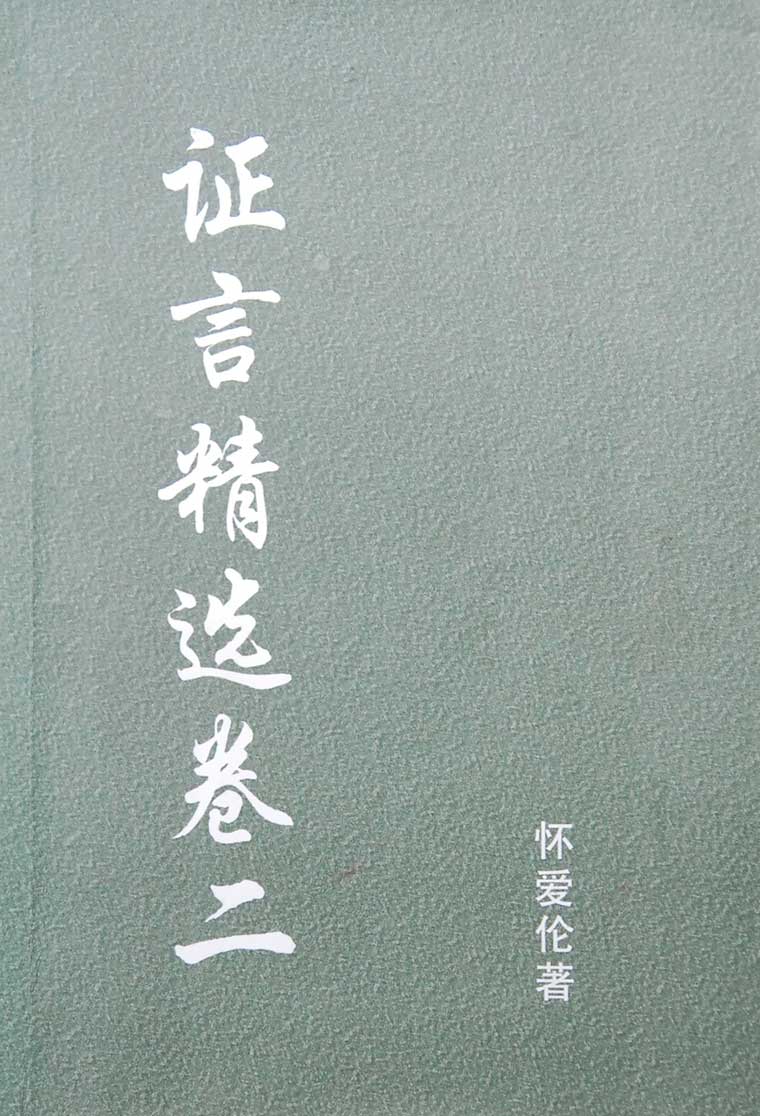 证言精选卷二
怀爱伦著